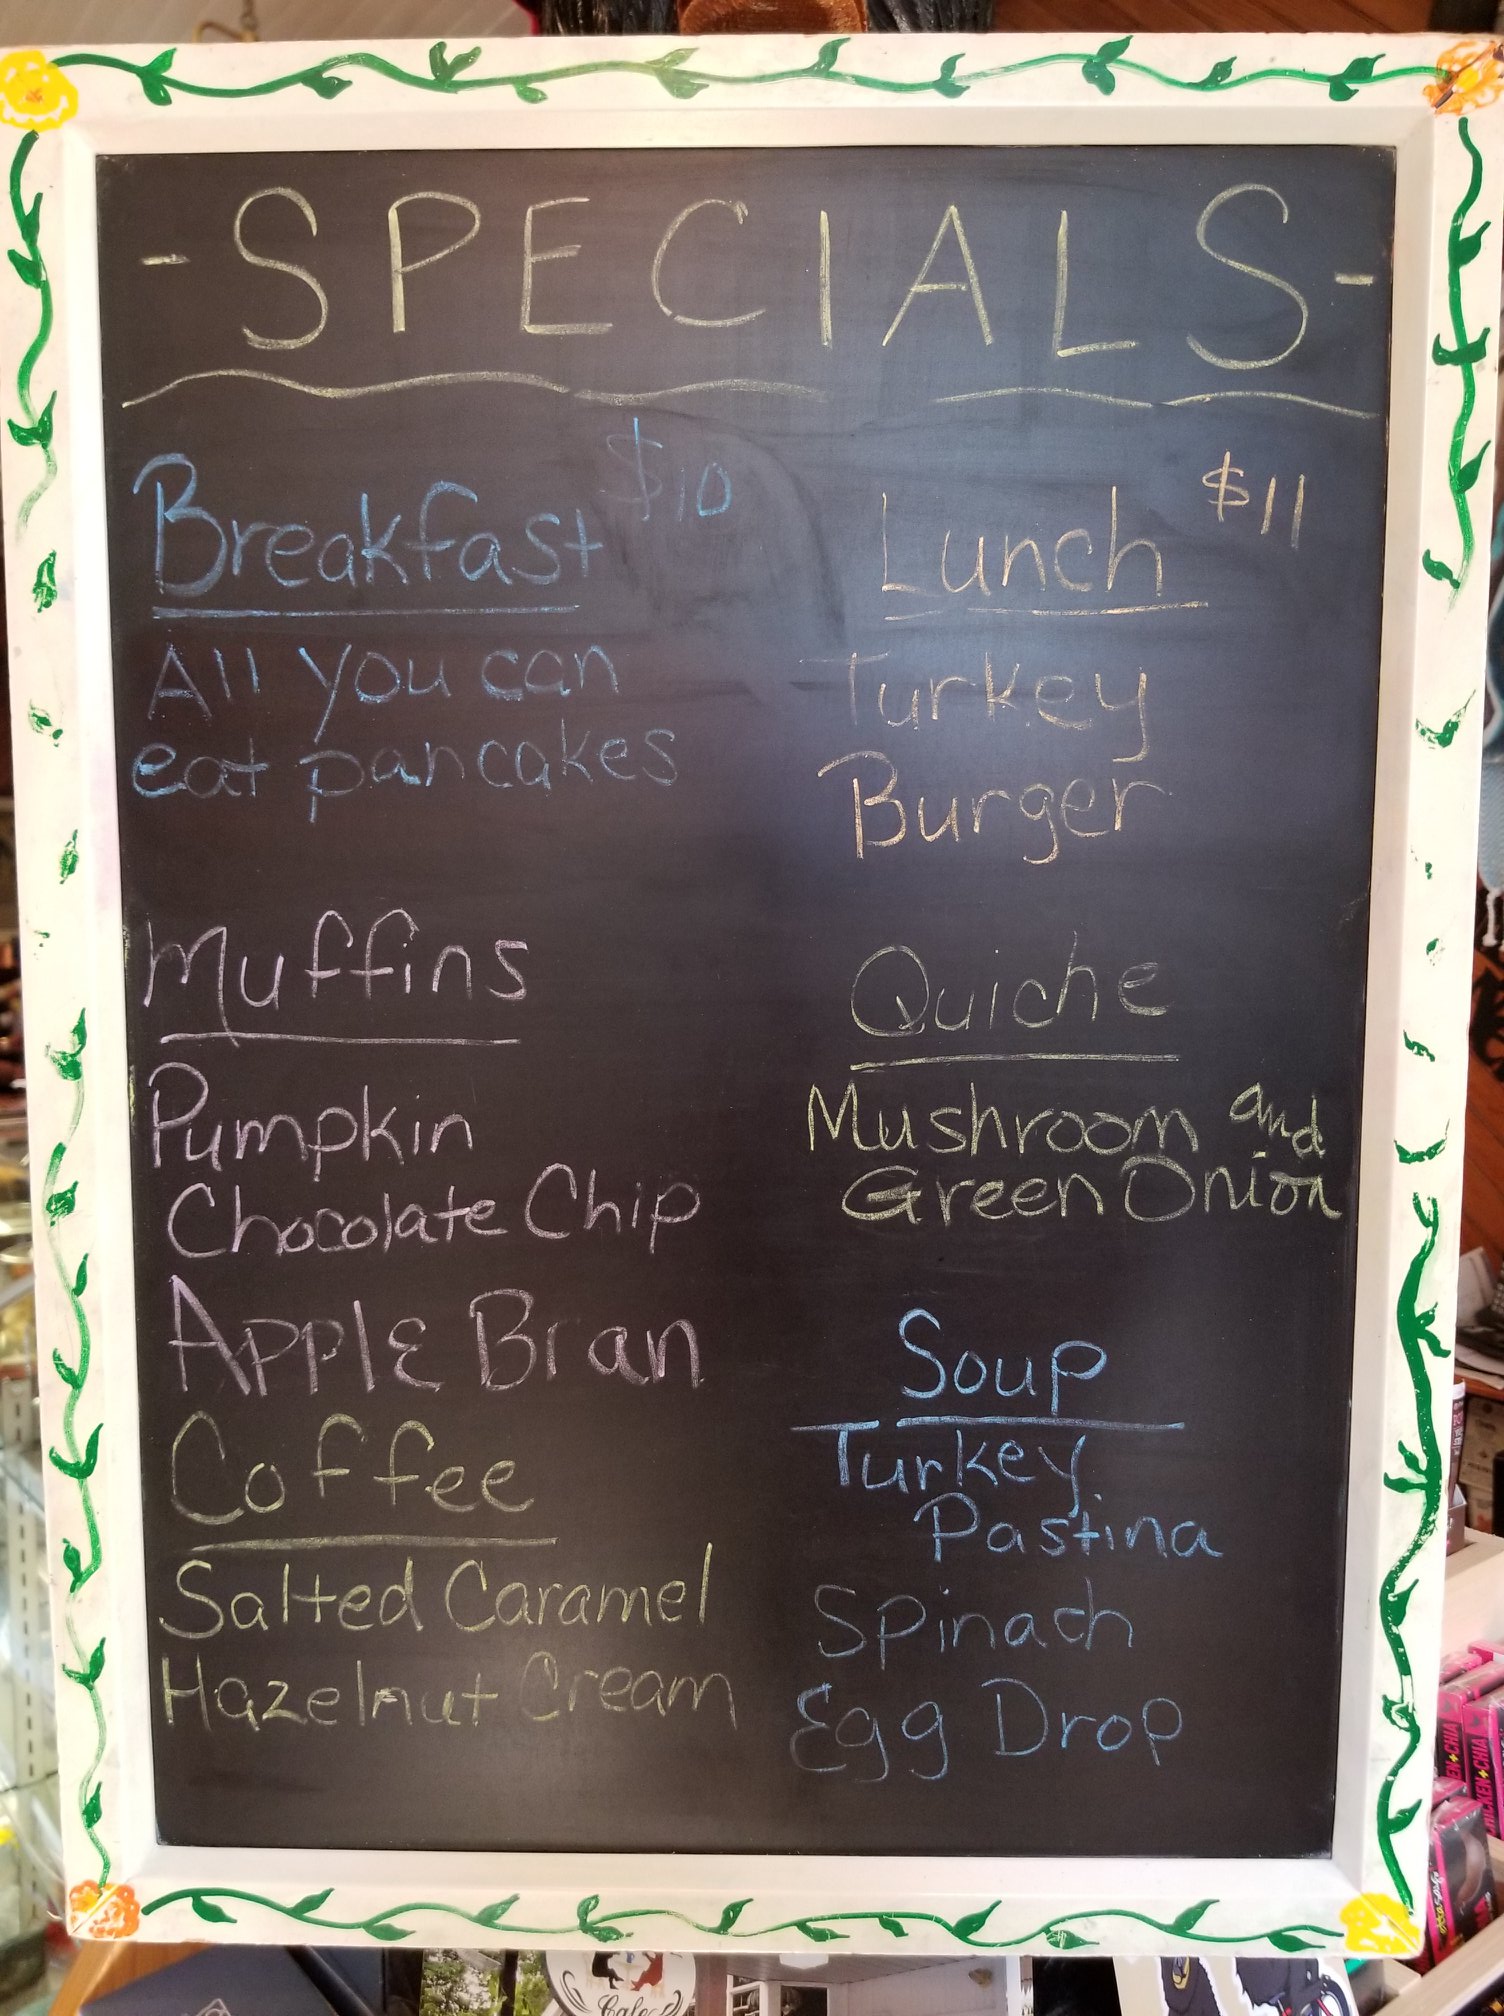 -SPECIALS-
Breakfast $10
All you can
eat pancakes
Muffins
Pumpkin
Chocolate Chip
Apple Bran
Coffee
Salted Caramel
Hazelnut Cream
Lunch $11
Turkey
Burger
Quiche
Mushroom and
Green Onion
Soup
Turkey
Pastina
Spinach
Egg Drop
CHICKEN+CHIA